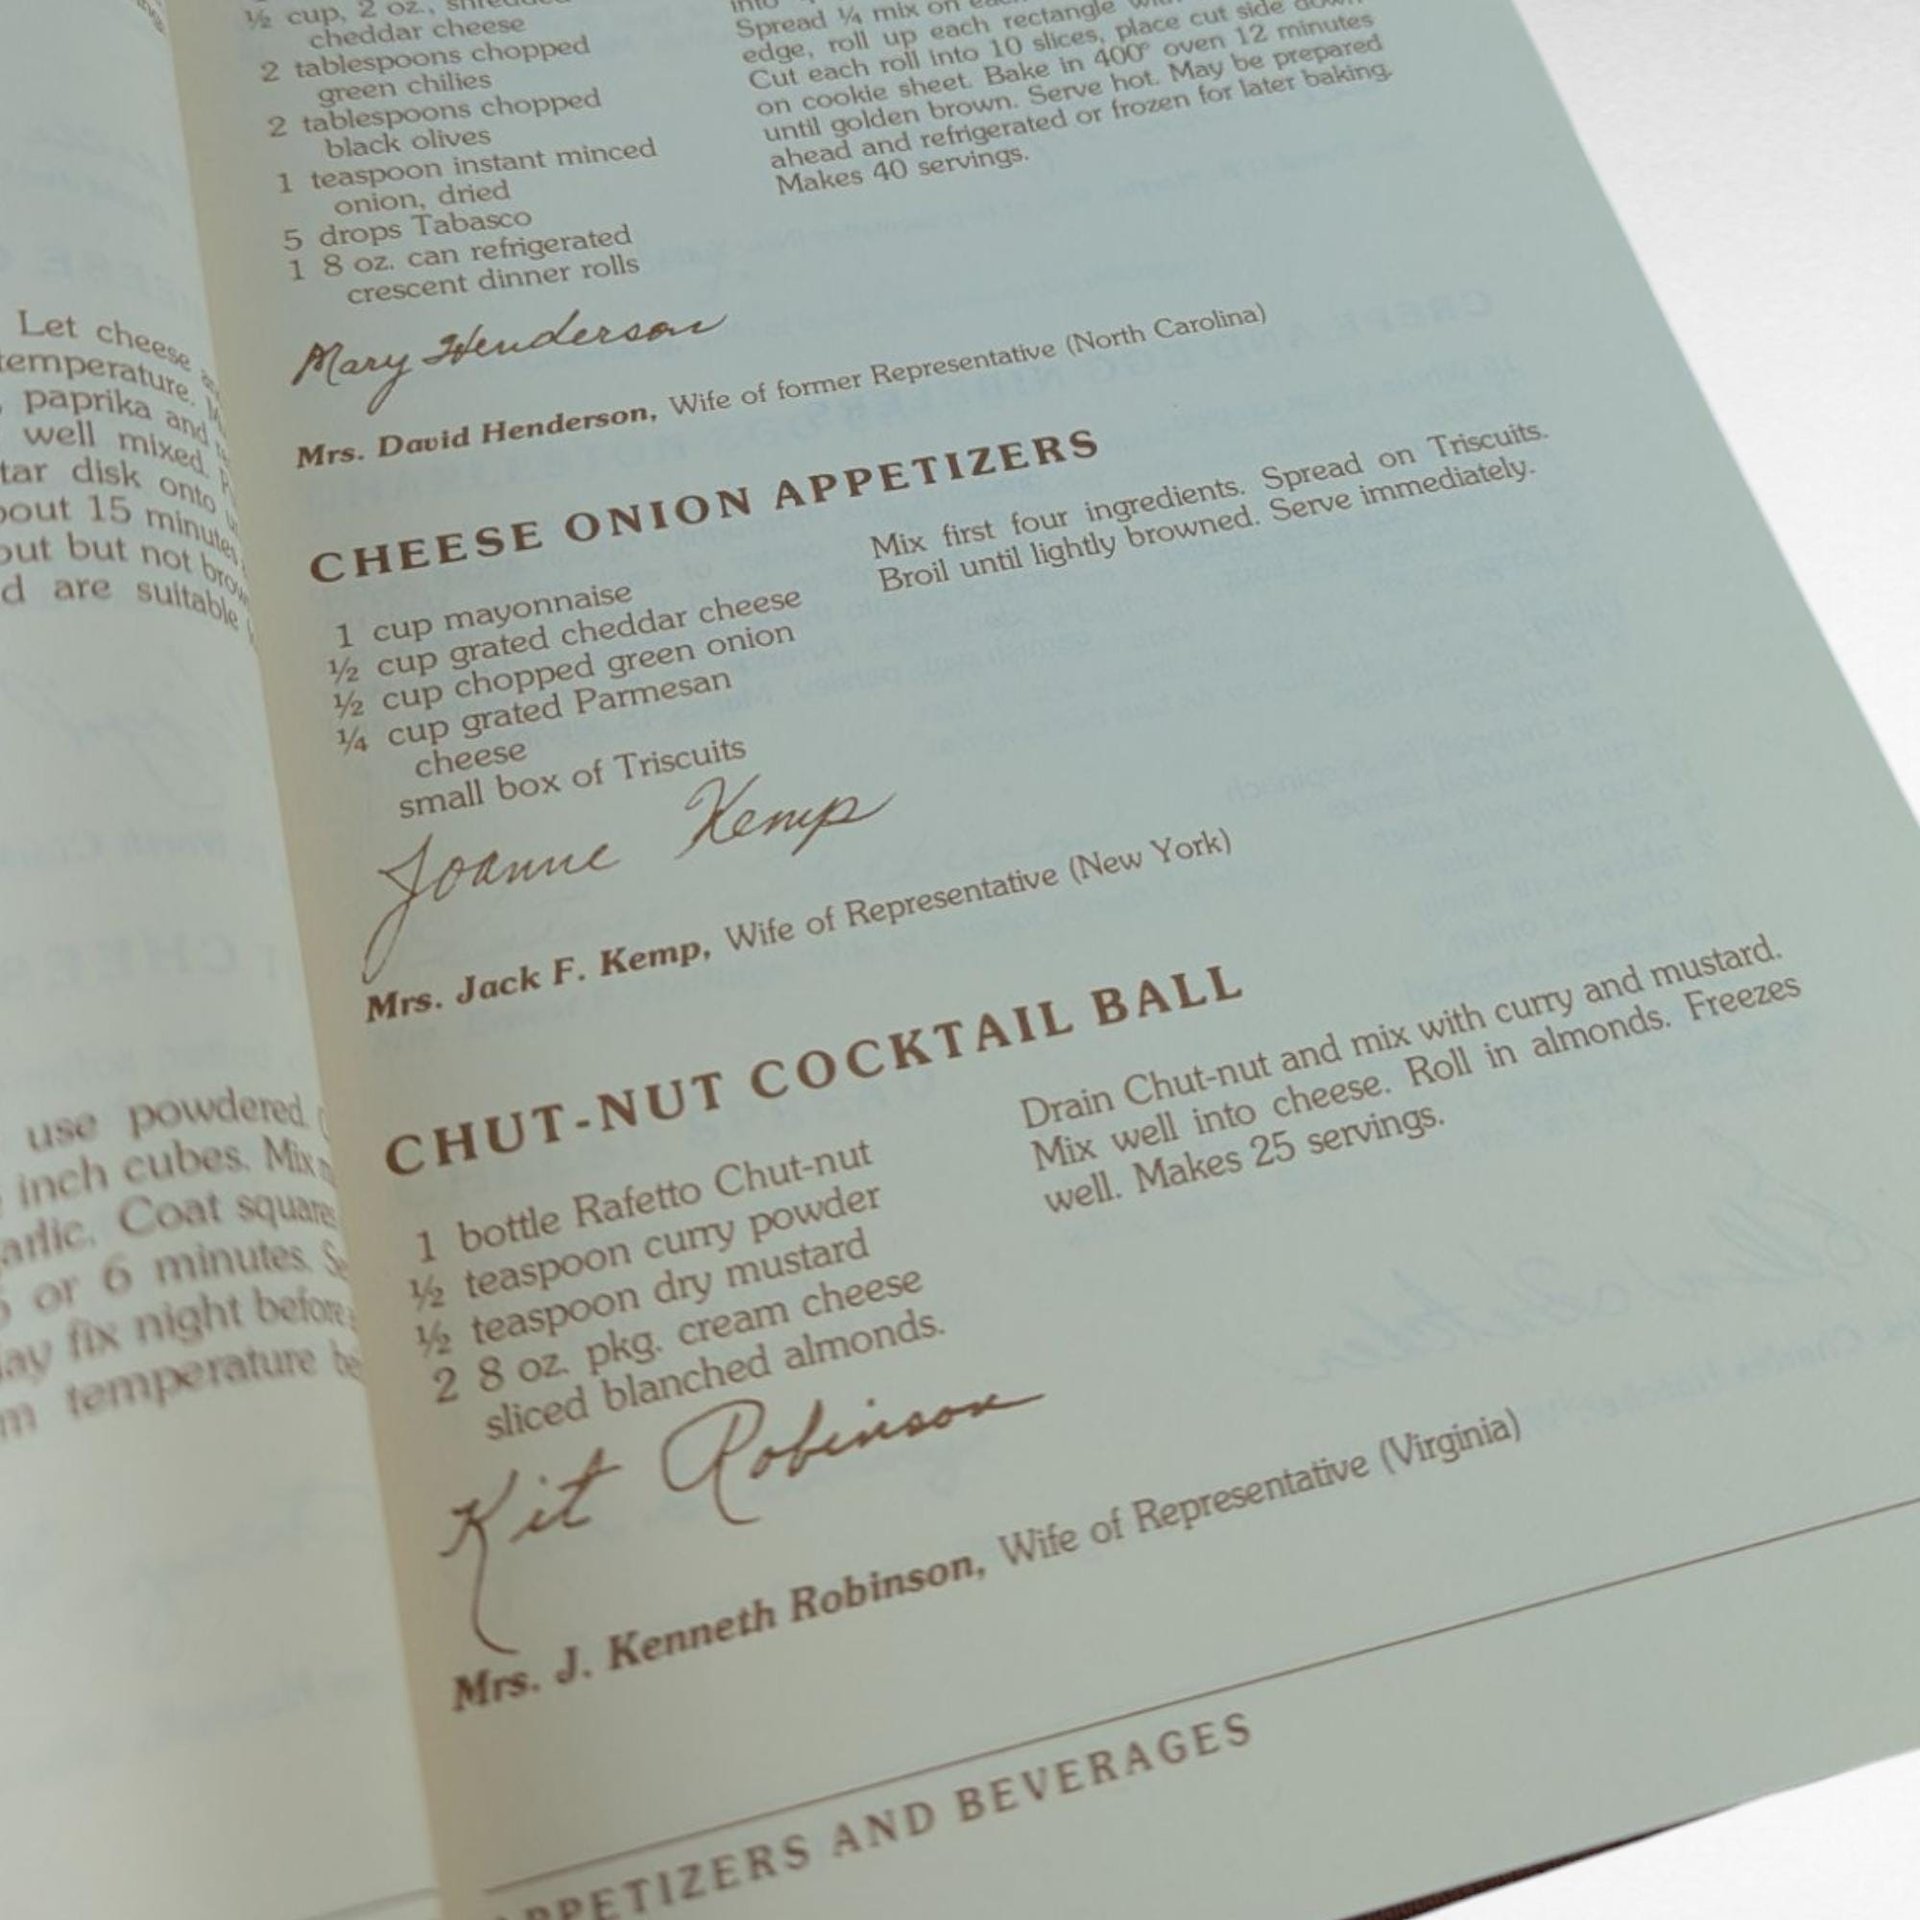 Let cheese
temperature.
paprika and
well mixed.
disk onto
15 minutes
but not
d are suitable
use powdered
inch cubes. Mix
Coat squares
or 6 minutes.
fix night before
temperature
½ cup, 2 oz., shredded
cheddar cheese
2 tablespoons chopped
green chilies
2 tablespoons chopped
black olives
1 teaspoon instant minced
onion, dried
5 drops Tabasco
1 8 oz. can refrigerated
crescent dinner rolls
into
Spread ¼ mix on
edge, roll up each rectangle
Cut each roll into 10 slices, place cut side down
on cookie sheet. Bake in 400° oven 12 minutes
until golden brown. Serve hot. May be prepared
ahead and refrigerated or frozen for later baking.
Makes 40 servings.
Mary Henderson
Mrs. David Henderson, Wife of former Representative (North Carolina)
CHEESE ONION APPETIZERS
1 cup mayonnaise
½ cup grated cheddar cheese
½ cup chopped green onion
¼ cup grated Parmesan
cheese
small box of Triscuits
Mix first four ingredients. Spread on Triscuits.
Broil until lightly browned. Serve immediately.
Joanne Kemp
Mrs. Jack F. Kemp, Wife of Representative (New York)
CHUT-NUT COCKTAIL BALL
1 bottle Rafetto Chut-nut
½ teaspoon curry powder
½ teaspoon dry mustard
2 8 oz. pkg. cream cheese
sliced blanched almonds.
Drain Chut-nut and mix with curry and mustard.
Mix well into cheese. Roll in almonds. Freezes
well. Makes 25 servings.
Kit Robinson
Mrs. J. Kenneth Robinson, Wife of Representative (Virginia)
APPETIZERS AND BEVERAGES